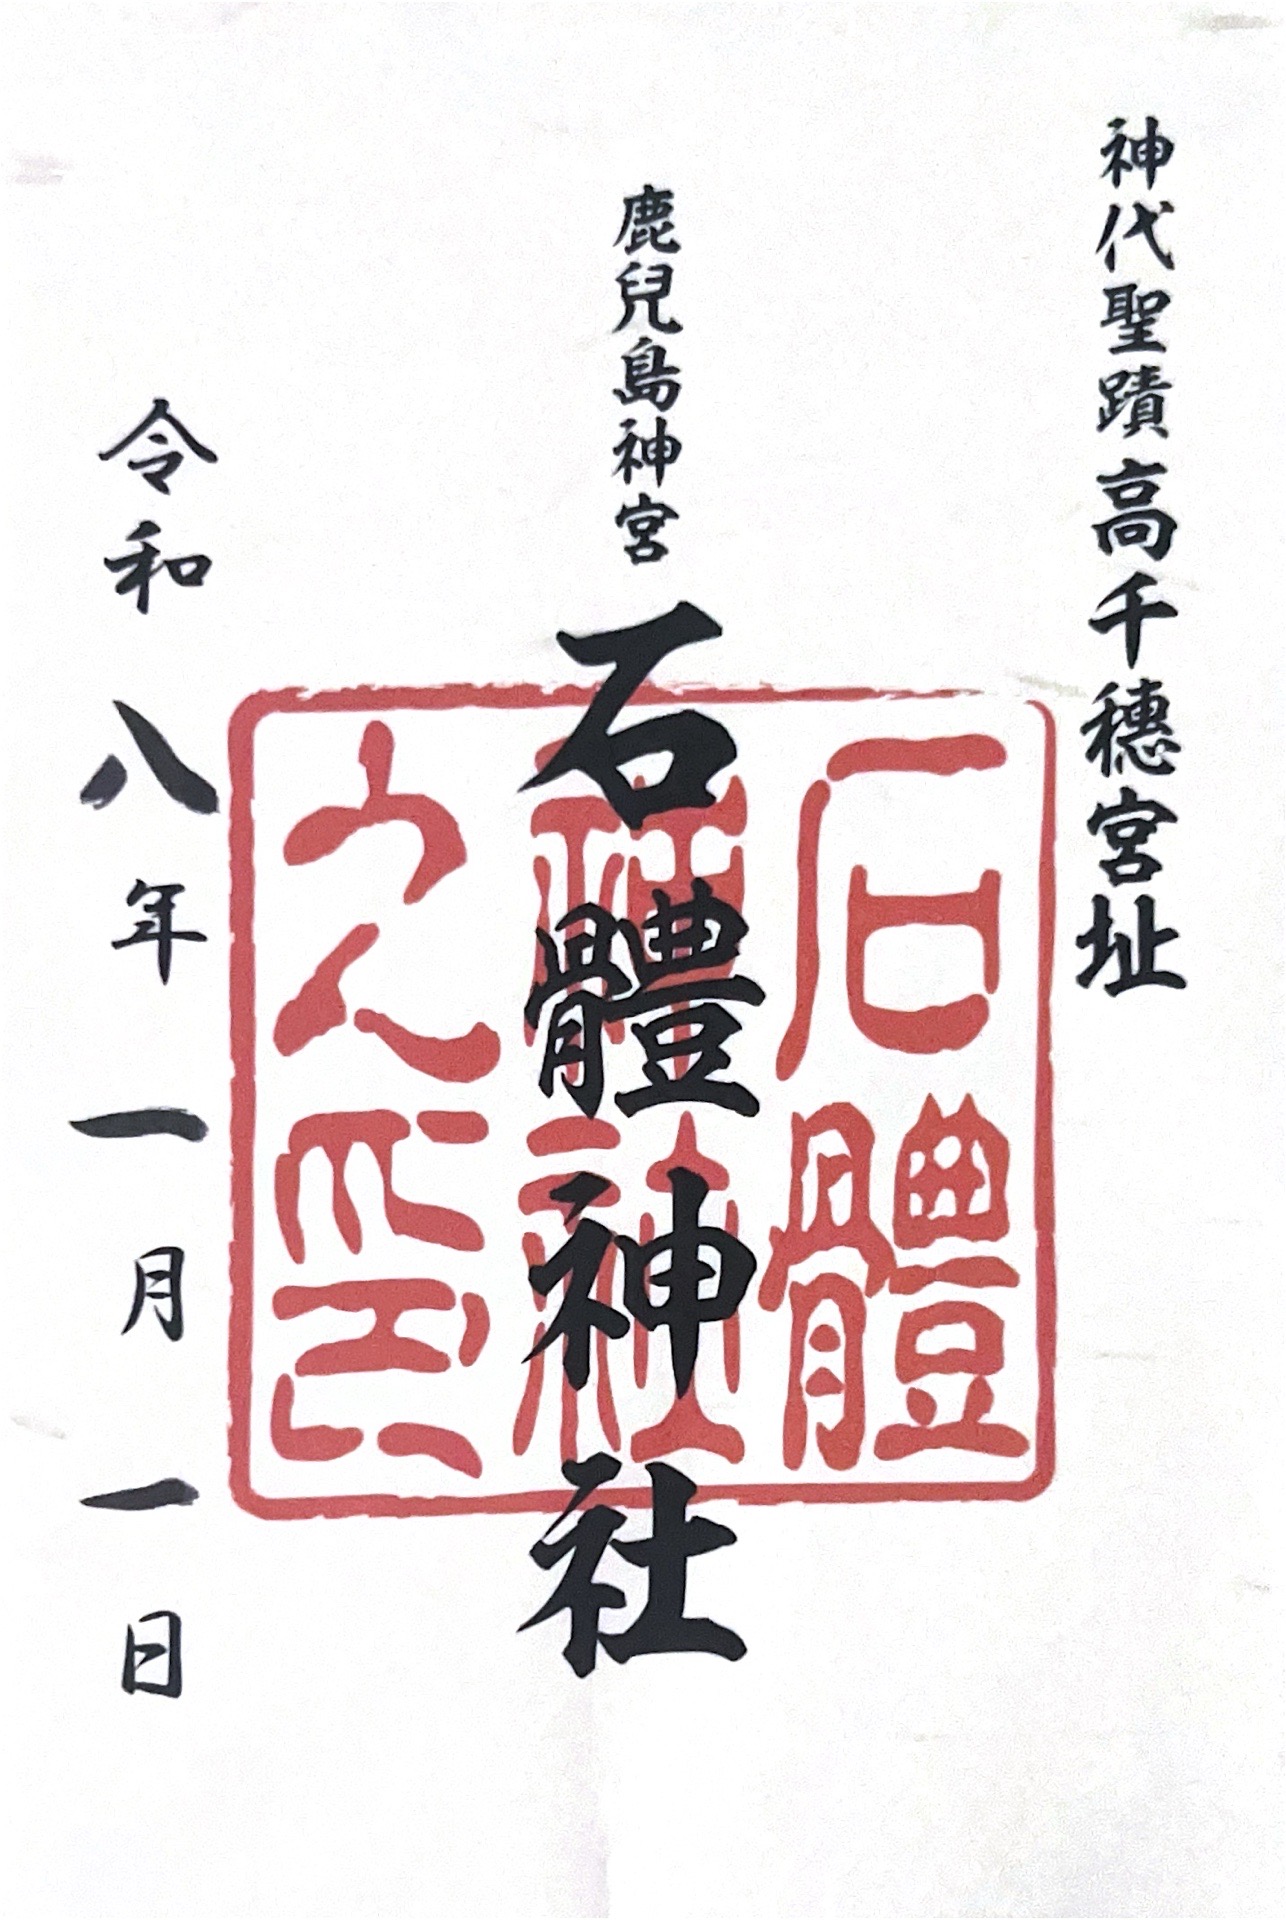 神代聖蹟高千穗宮址
鹿兒島神宮
石體神社
令和八年一月一日
石體
神社
印